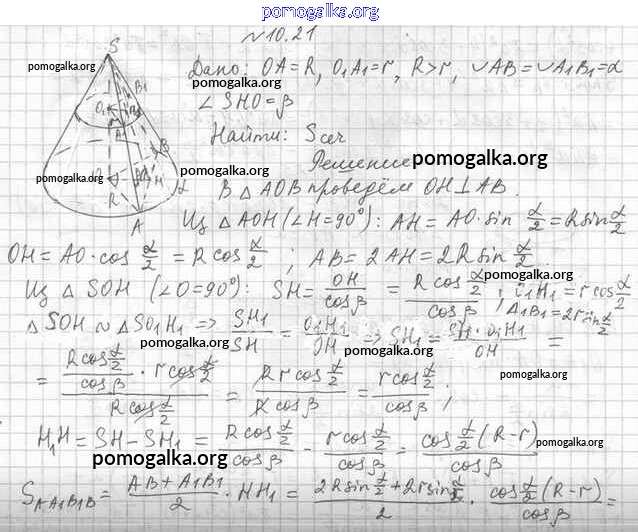 pomogalka.org
№10.21
Дано: OA=R, O₁A₁=r, R>r, ∪AB=∪A₁B₁=α
pomogalka.org
pomogalka.org
∠SHO=β
Найти: Sсеч
Решение
pomogalka.org
pomogalka.org
pomogalka.org
В △AOB проведём OH⊥AB.
Из △AOH (∠H=90°): AH=AO·sin α/2=R sin α/2
OH=AO·cos α/2=R cos α/2; AB=2AH=2R sin α/2.
pomogalka.org
Из △SOH (∠O=90°): SH=OH/cos β=(R cos α/2)/cos β; O₁H₁=r cos α/2
A₁B₁=2r sin α/2
△SOH∾△SO₁H₁ => SH₁/SH=O₁H₁/OH => SH₁=(SH·O₁H₁)/OH=
pomogalka.org
pomogalka.org
=((R cos α/2)/cos β · r cos α/2)/(R cos α/2)=(R r cos α/2)/(R cos β)=(r cos α/2)/cos β;
pomogalka.org
H₁H=SH-SH₁=(R cos α/2)/cos β-(r cos α/2)/cos β=(cos α/2 (R-r))/cos β
pomogalka.org
pomogalka.org
S AA₁B₁B=(AB+A₁B₁)/2·HH₁=(2R sin α/2+2r sin α/2)/2·(cos α/2 (R-r))/cos β=